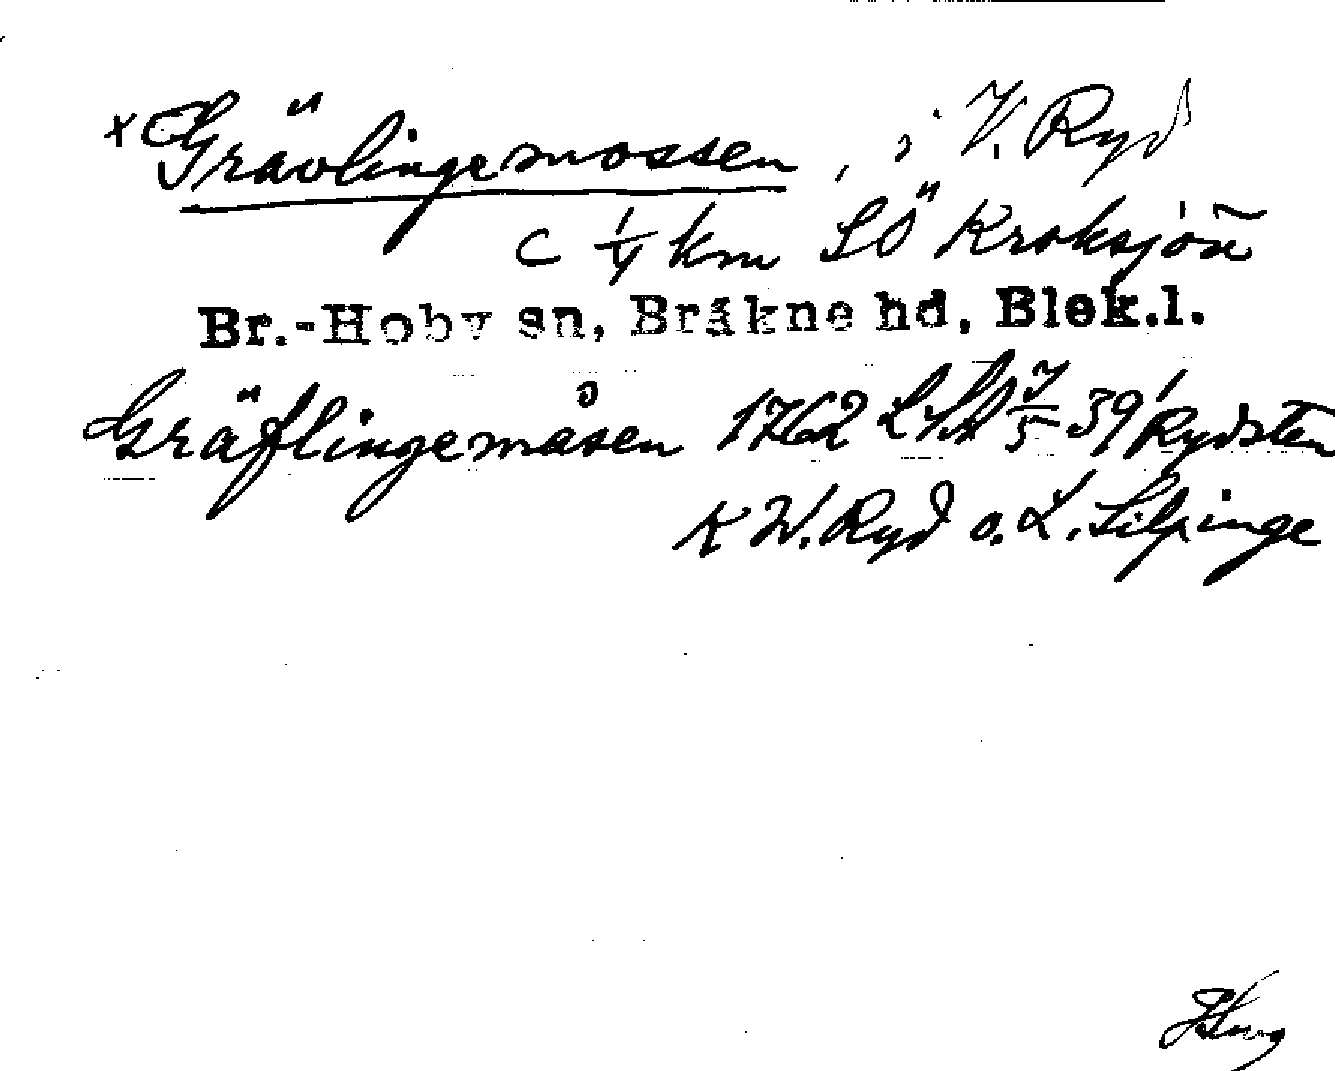 x Grävlingemossen, i V. Ryd
C 1/4 km SÖ Kroksjön
Br.-Hoby sn, Bräkne hd, Blek.l.
Gräflingemåsen 1762 LSA 7/5 39' Rydsten
K W. Ryd o. L. Silpinge